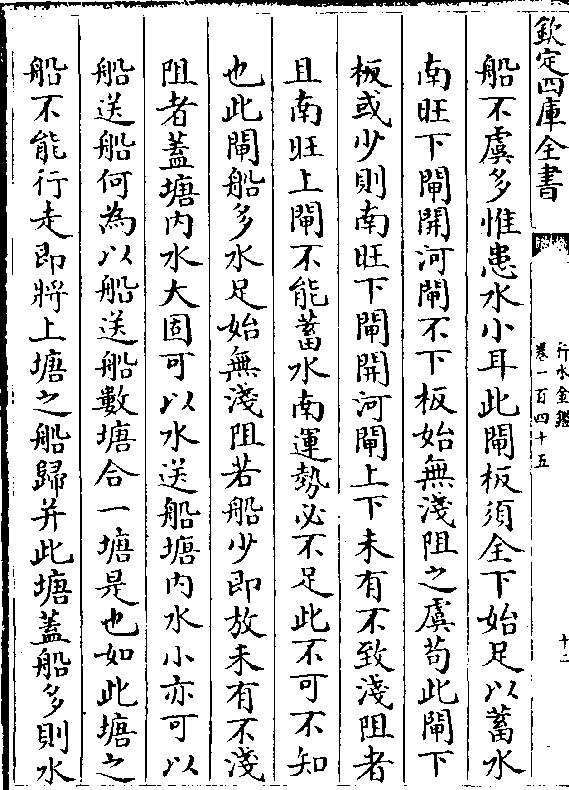 欽定四庫全書
行水金鑑
卷一百四十五
十二
船不虞多惟患水小耳此閘板須全下始足以蓄水
南旺下閘開河閘不下板始無淺阻之虞茍此閘下
板或少則南旺下閘開河閘上下未有不致淺阻者
且南旺上閘不能蓄水南運勢必不足此不可不知
也此閘船多水足始無淺阻若船少即放未有不淺
阻者蓋塘内水大固可以水送船塘内水小亦可以
船送船何為以船送船數塘合一塘是也如此塘之
船不能行走即將上塘之船歸并此塘蓋船多則水